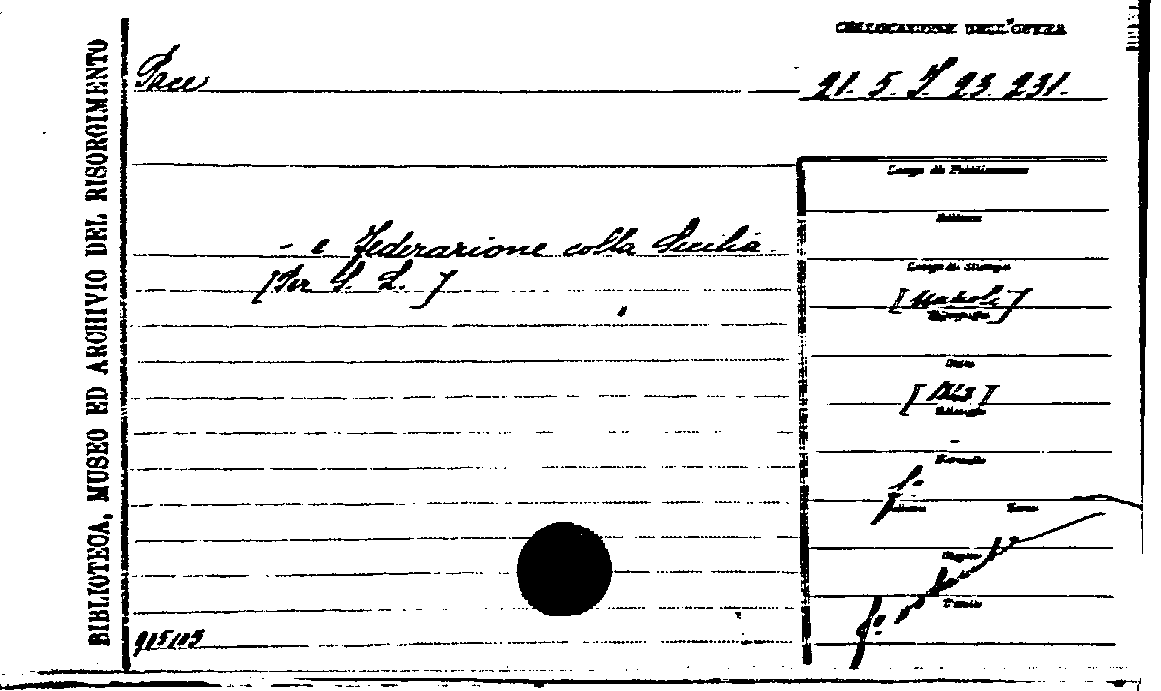 BIBLIOTECA, MUSEO ED ARCHIVIO DEL RISORGIMENTO
COLLOCAZIONE DELL'OPERA
Pace
21. 5. I. 23. 231.
Luogo di Pubblicazione
Editore
- e Federazione colla Sicilia.
[Per S. L.]
Luogo di Stampa
[Napoli]
Tipografia
Data
[1848]
Formato
f.º
Volume
Tomo
Pagine
Tavole
f.º